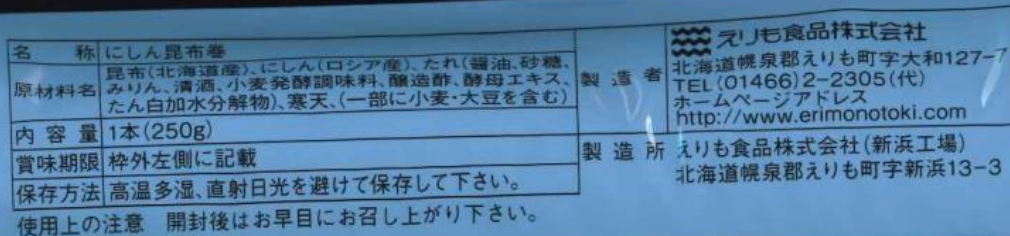 名 称 にしん昆布巻
原材料名 昆布(北海道産)、にしん(ロシア産)、たれ(醤油、砂糖、
みりん、清酒、小麦発酵調味料、醸造酢、酵母エキス、
たん白加水分解物)、寒天、(一部に小麦・大豆を含む)
内 容 量 1本(250g)
賞味期限 枠外左側に記載
保存方法 高温多湿、直射日光を避けて保存して下さい。
使用上の注意 開封後はお早目にお召し上がり下さい。
製 造 者 えりも食品株式会社
北海道幌泉郡えりも町字大和127-7
TEL(01466)2-2305(代)
ホームページアドレス
http://www.erimonotoki.com/
製 造 所 えりも食品株式会社(新浜工場)
北海道幌泉郡えりも町字新浜13-3